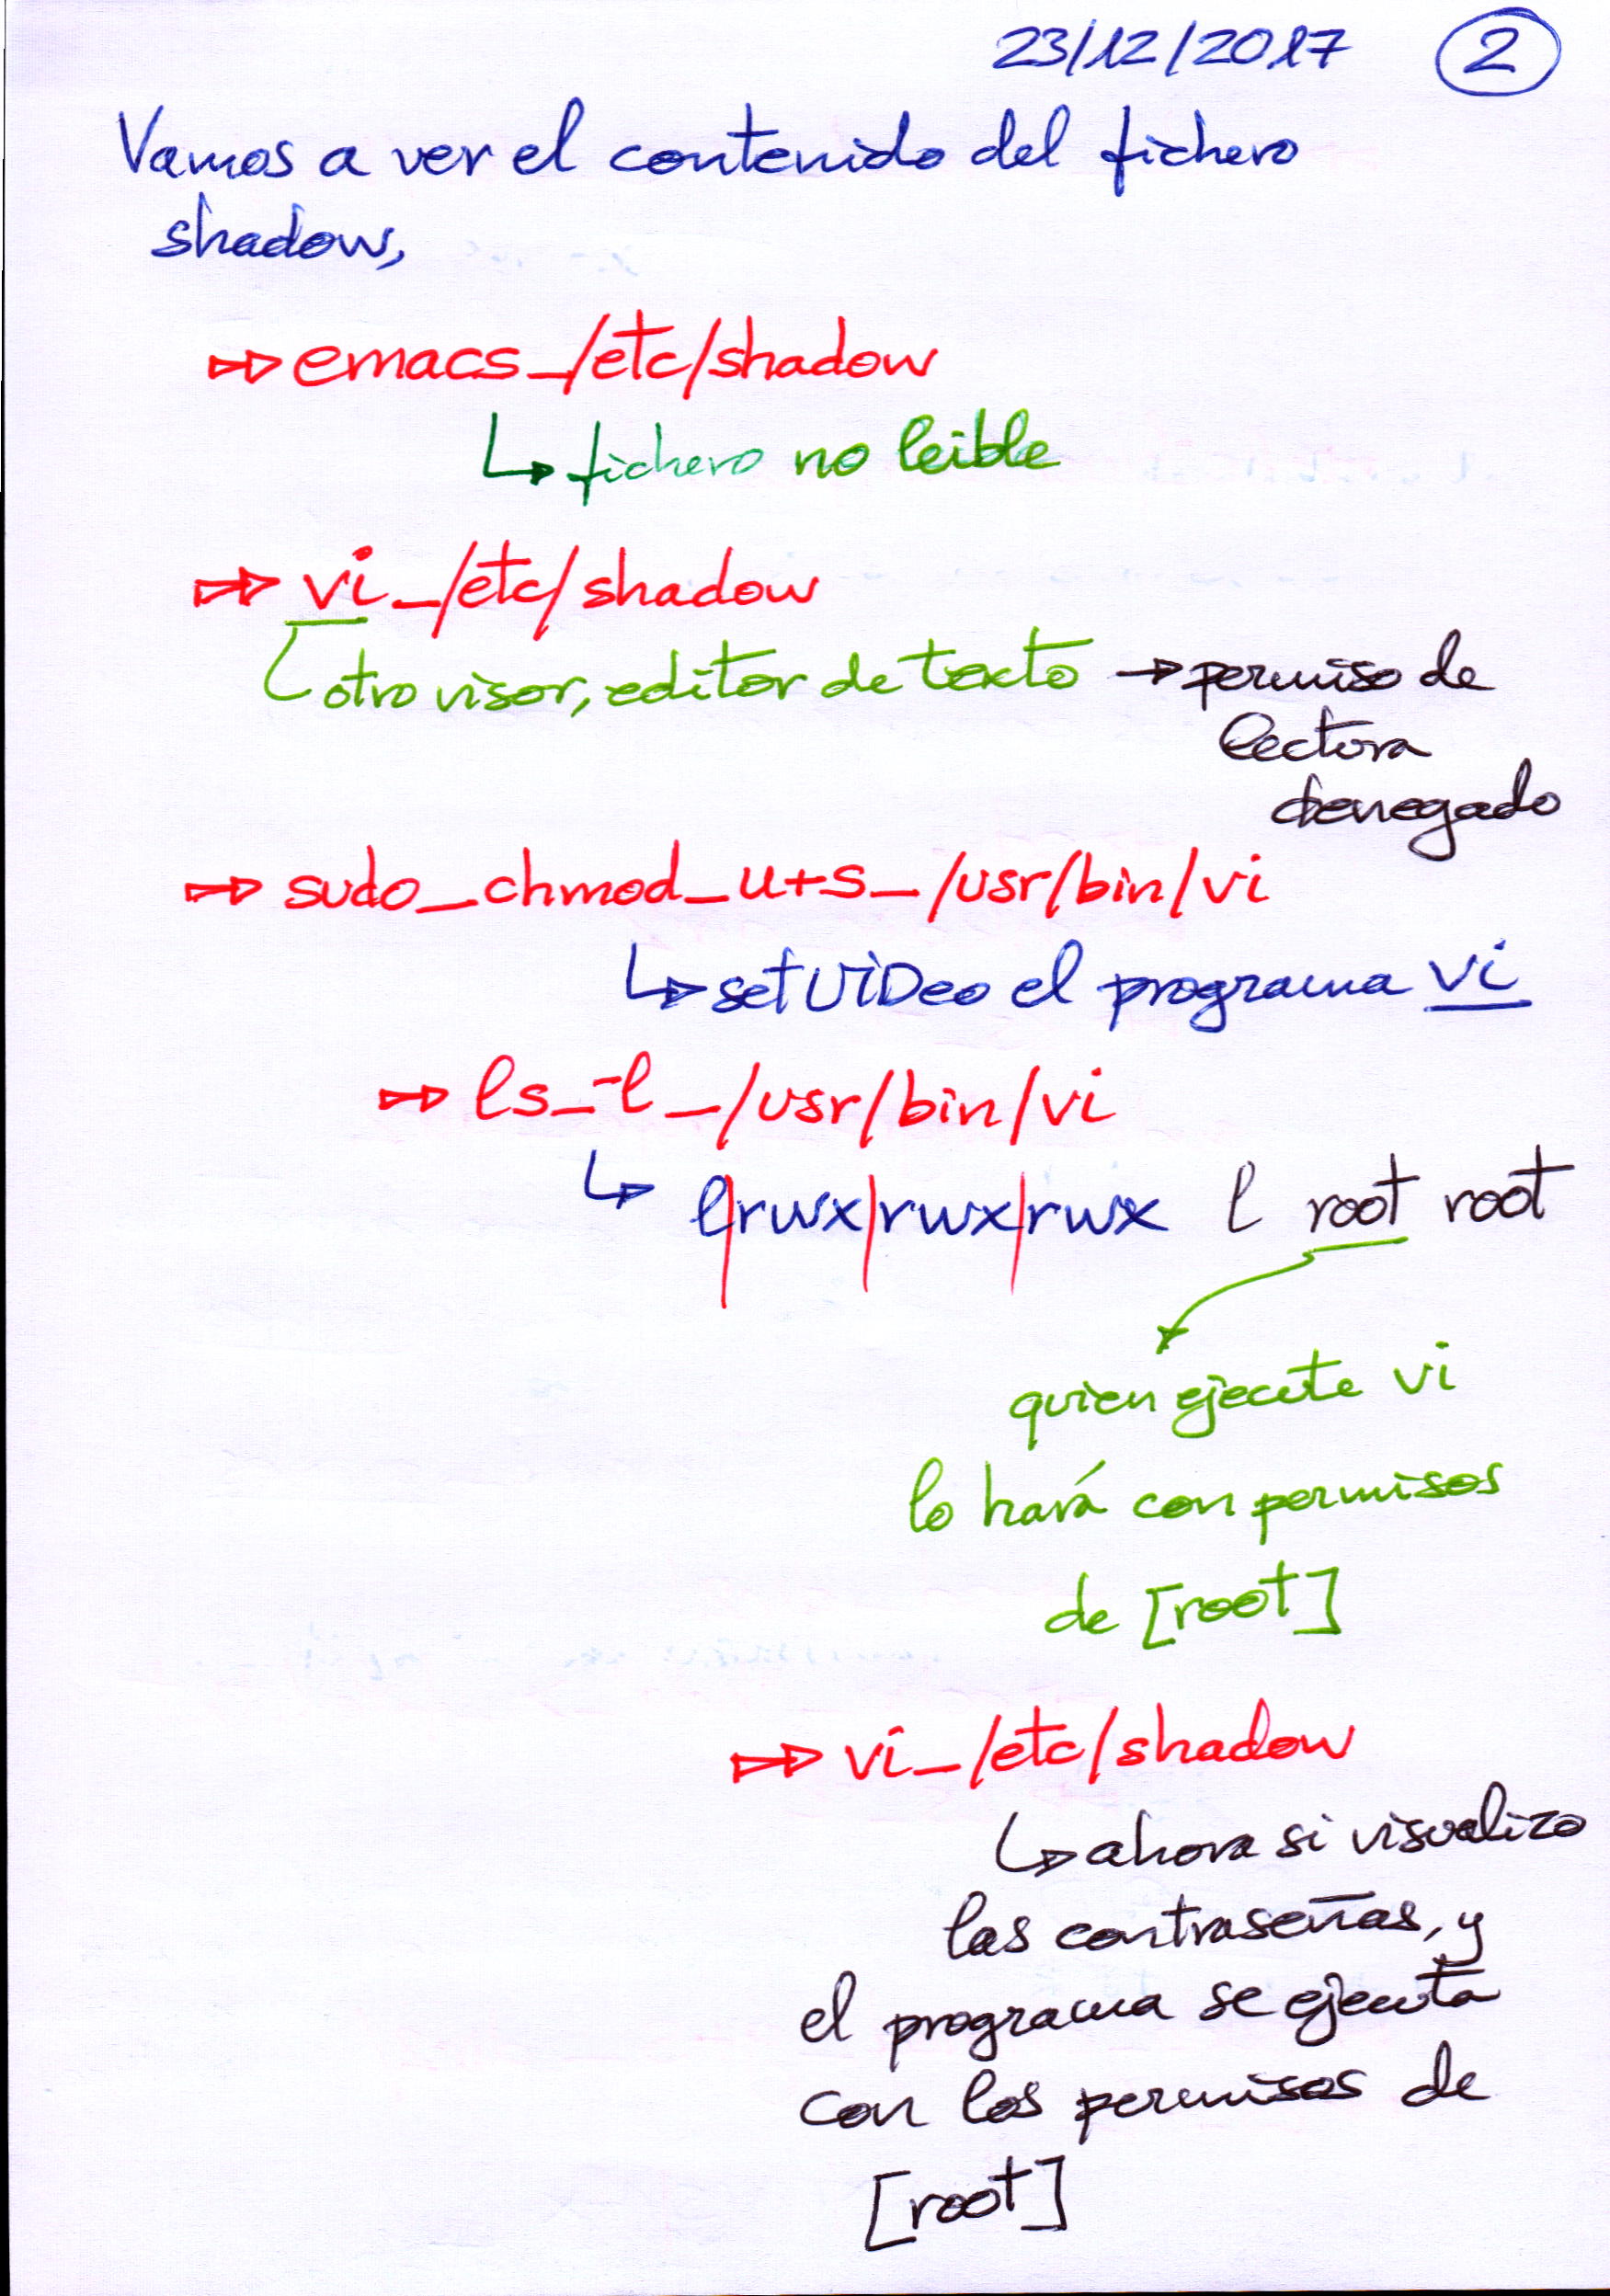 23/12/2017 2
Vamos a ver el contenido del fichero
shadow,
emacs_/etc/shadow
fichero no leible
vi_/etc/shadow
otro visor, editor de texto → permiso de
lectura
denegado
sudo_chmod_u+s_/usr/bin/vi
setUiDeo el programa vi
ls_-l_/usr/bin/vi
l|rwx|rwx|rwx l root root
quien ejecute vi
lo hará con permisos
de [root]
vi_/etc/shadow
ahora si visualizo
las contraseñas, y
el programa se ejecuta
con los permisos de
[root]